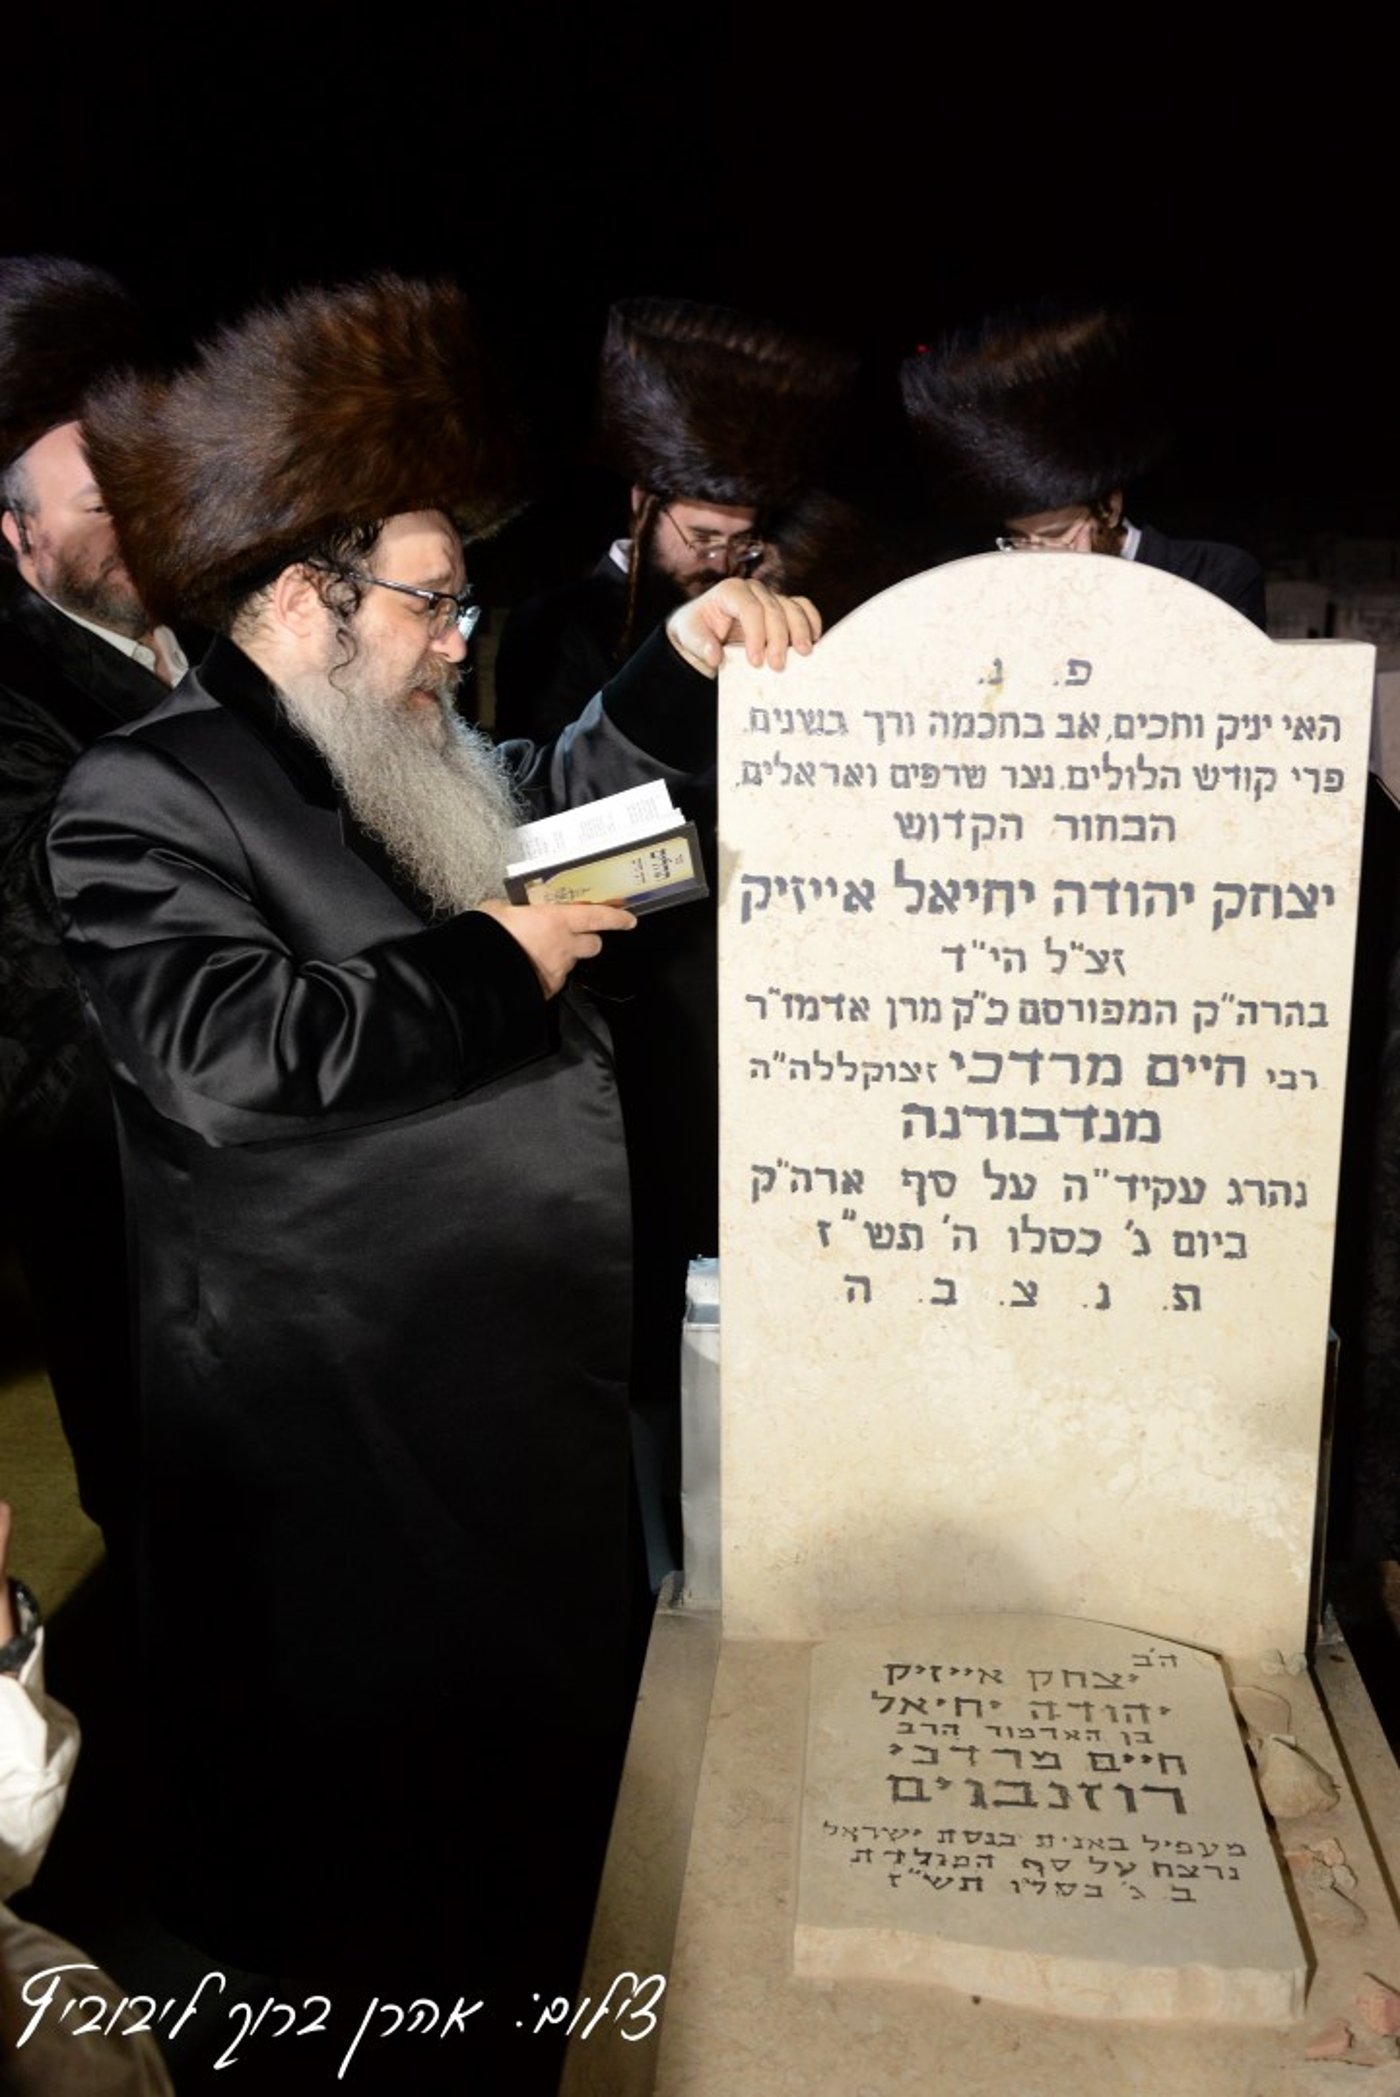 פ. נ.
האי יניק וחכים, אב בחכמה ורך בשנים.
פרי קודש הלולים. נצר שרפים ואראלים.
הבחור הקדוש
יצחק יהודה יחיאל אייזיק
זצ"ל הי"ד
בהרה"ק המפורסם כ"ק מרן אדמו"ר
רבי חיים מרדכי זצוקללה"ה
מנדבורנה
נהרג עקיד"ה על סף ארה"ק
ביום ג' כסלו ה' תש"ז
ת. נ. צ. ב. ה
הב'
יצחק אייזיק
יהודה יחיאל
בן האדמור הרב
חיים מרדכי
רוזנבוים
מעפיל באנית כנסת ישראל
נרצח על סף המולדת
ב ג' כסלו תש"ז
צילום: אהרן ברוך ליבוביץ